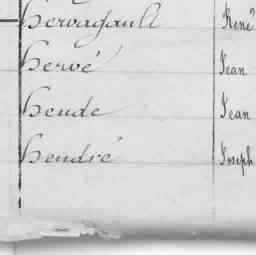 Hervagault René
Hervé Jean
Heude Jean
Heudré Joseph